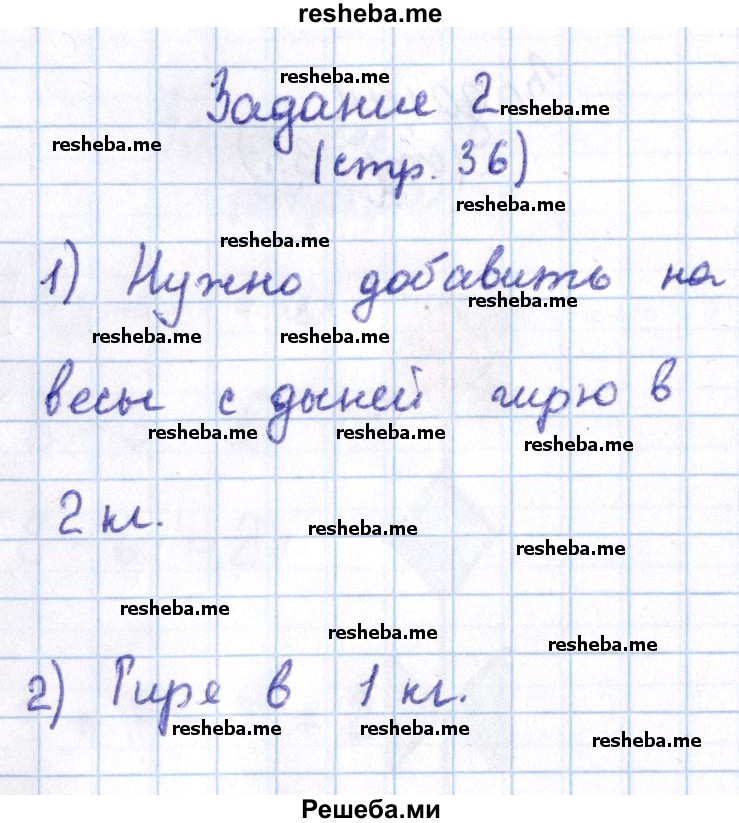 resheba.me
resheba.me
Задание 2
resheba.me
resheba.me
(стр. 36)
resheba.me
resheba.me
1) Нужно добавить на
resheba.me
resheba.me resheba.me
весы с дыней гирю в
resheba.me resheba.me
resheba.me
2 кг.
resheba.me
resheba.me
resheba.me
resheba.me
resheba.me
2) Гире в 1 кг.
resheba.me resheba.me
resheba.me
Решеба.ми